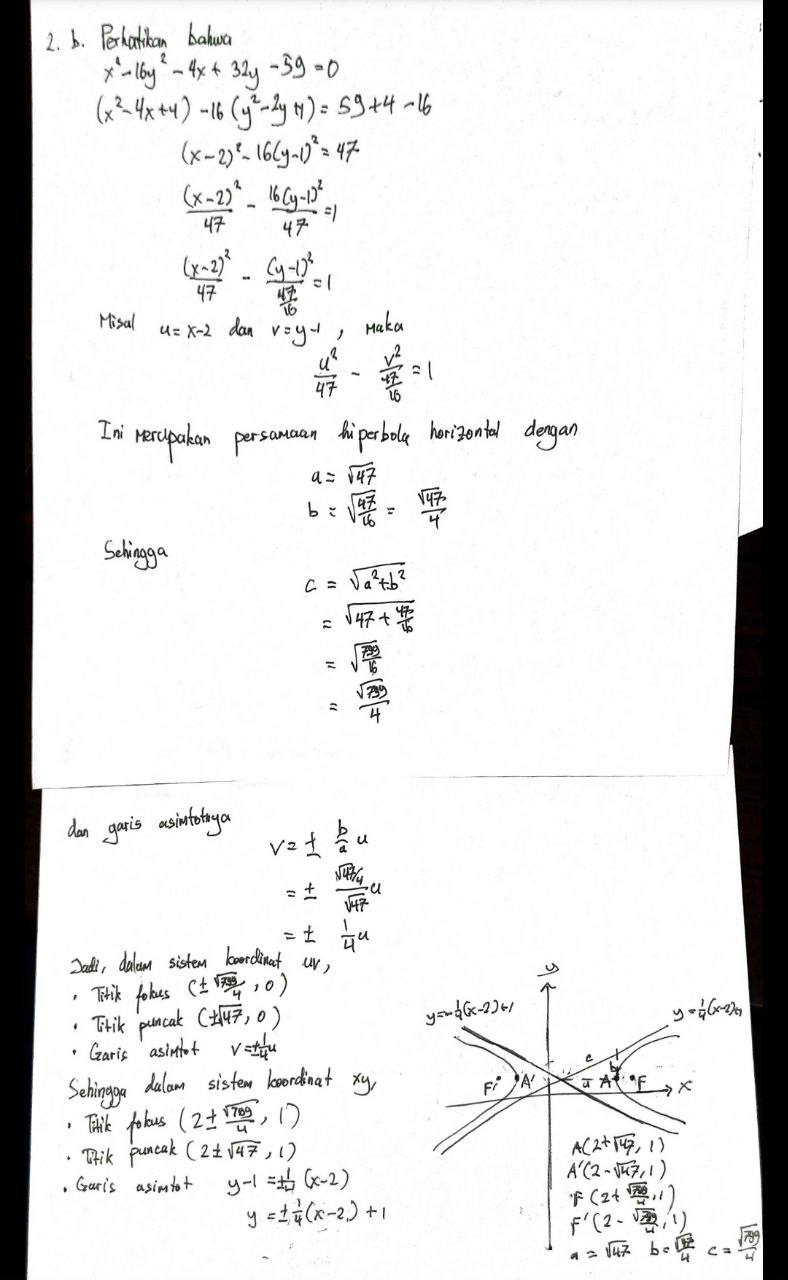 2. b. Perhatikan bahwa
x² - 16y² - 4x + 32y - 59 = 0
(x² - 4x + 4) - 16 (y² - 2y + 1) = 59 + 4 - 16
(x-2)² - 16(y-1)² = 47
(x-2)²/47 - 16(y-1)²/47 = 1
(x-2)²/47 - (y-1)²/(47/16) = 1
Misal u = x-2 dan v = y-1, maka
u²/47 - v²/(47/16) = 1
Ini merupakan persamaan hiperbola horizontal dengan
a = √47
b = √(47/16) = √47/4
Sehingga
c = √(a²+b²)
= √(47 + 47/16)
= √(799/16)
= √799/4
dan garis asimtotnya
v = ± b/a u
= ± (√47/4)/√47 u
= ± 1/4 u
Jadi, dalam sistem koordinat uv,
• Titik fokus (± √799/4, 0)
• Titik puncak (±√47, 0)
• Garis asimtot v = ±1/4 u
Sehingga dalam sistem koordinat xy,
• Titik fokus (2 ± √799/4, 1)
• Titik puncak (2 ± √47, 1)
• Garis asimtot y-1 = ±1/4 (x-2)
y = ± 1/4 (x-2) + 1
y
y = -1/4(x-2)+1
y = 1/4(x-2)+1
c
b
F' A' a A F
x
A(2+√47, 1)
A'(2-√47, 1)
F(2+ √799/4, 1)
F'(2- √799/4, 1)
a = √47 b = √47/4 c = √799/4